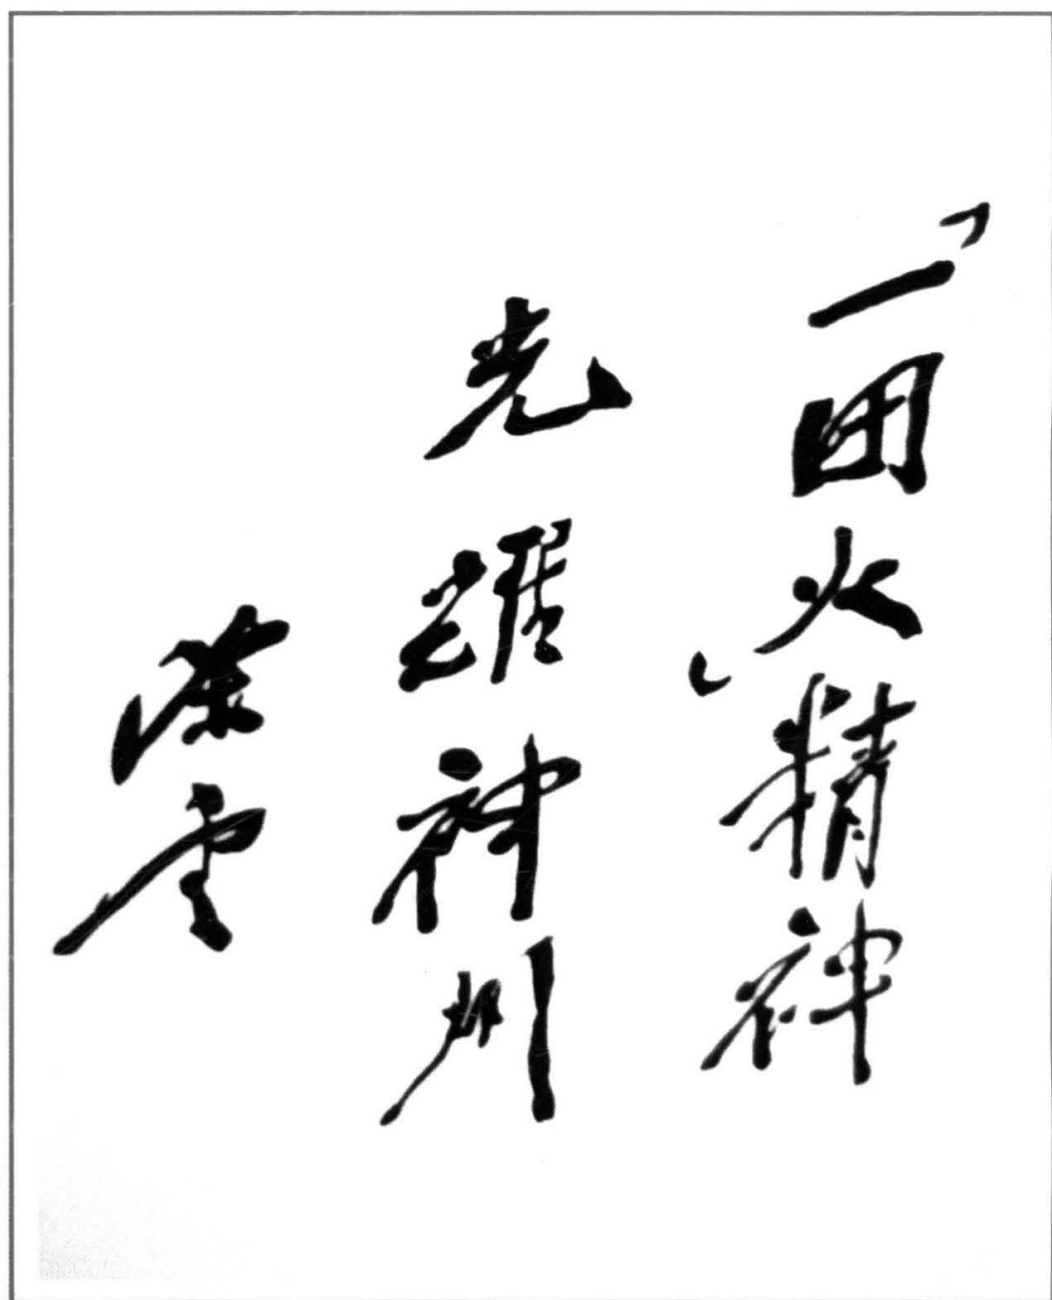 「一团火」精神
光耀神州
陈云